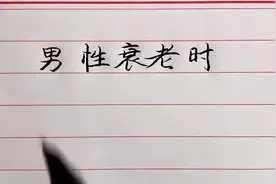 男性衰老时